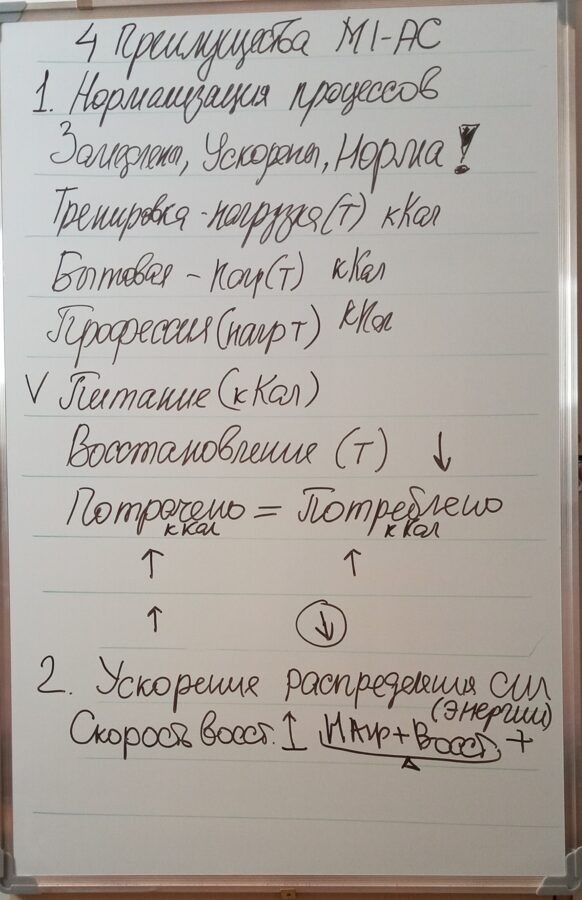 4 Преимущества MI-AC
1. Нормализация процессов
Замедлены, Ускорены, Норма!
Тренировка-нагрузка(т) кКал
Бытовая - нагр(т) кКал
Профессия(нагр т) кКал
V Питание (кКал)
Восстановление (т) ↓
Потрачено = Потреблено
кКал кКал
↑ ↑
↑ ↓
2. Ускорение распределения сил
(энергии)
Скорость восст. ↑ Нагр+Восст. +